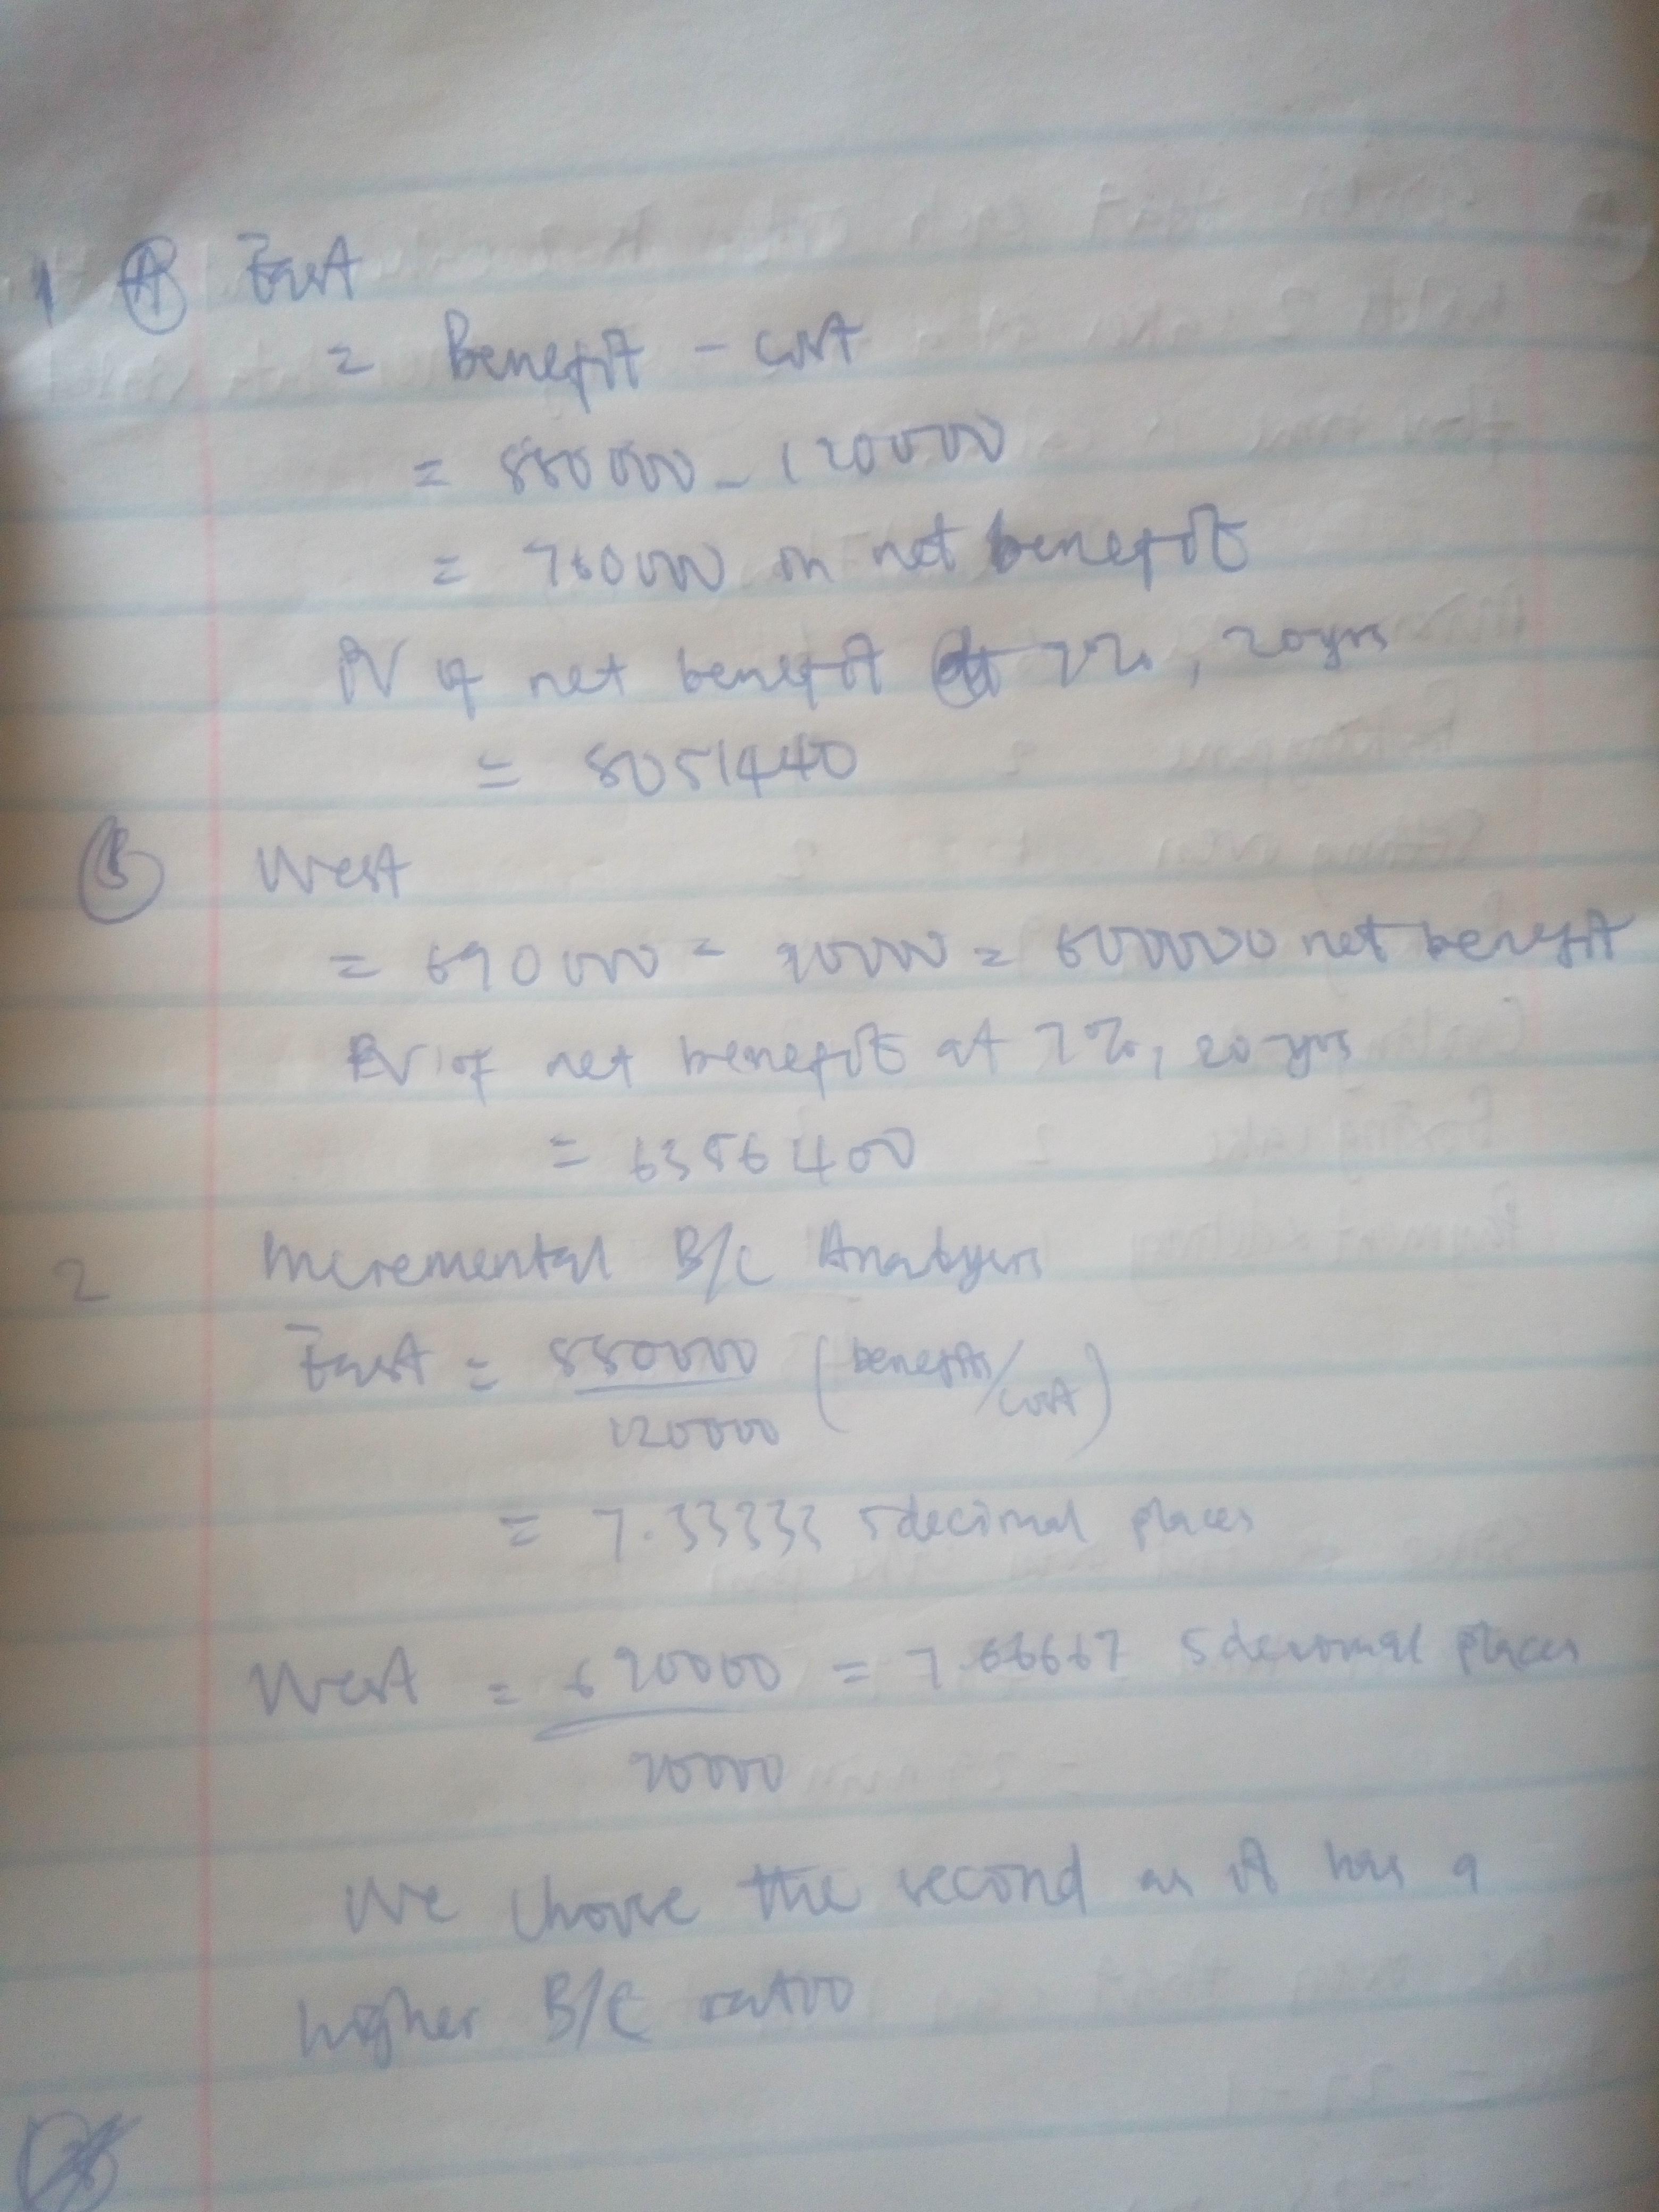 1 (A) East
= Benefit - cost
= 880000 - 120000
= 760000 in net benefit
PV of net benefit at 7%, 20yrs
= 8051440
(B) West
= 690000 - 90000 = 600000 net benefit
PV of net benefit at 7%, 20 yrs
= 6356400
2 Incremental B/C Analysis
East = 880000 (benefits/cost)
120000
= 7.33333 5decimal places
West = 690000 = 7.66667 5decimal places
90000
We choose the second as it has a
higher B/C ratio